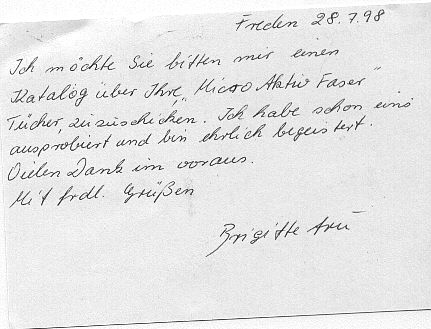 Freden 28.7.98
Ich möchte Sie bitten mir einen
Katalog über Ihre "Micro Aktiv Faser"
Tücher, zuzuschicken. Ich habe schon eins
ausprobiert und bin ehrlich begeistert.
Vielen Dank im voraus.
Mit frdl. Grüßen
Brigitte